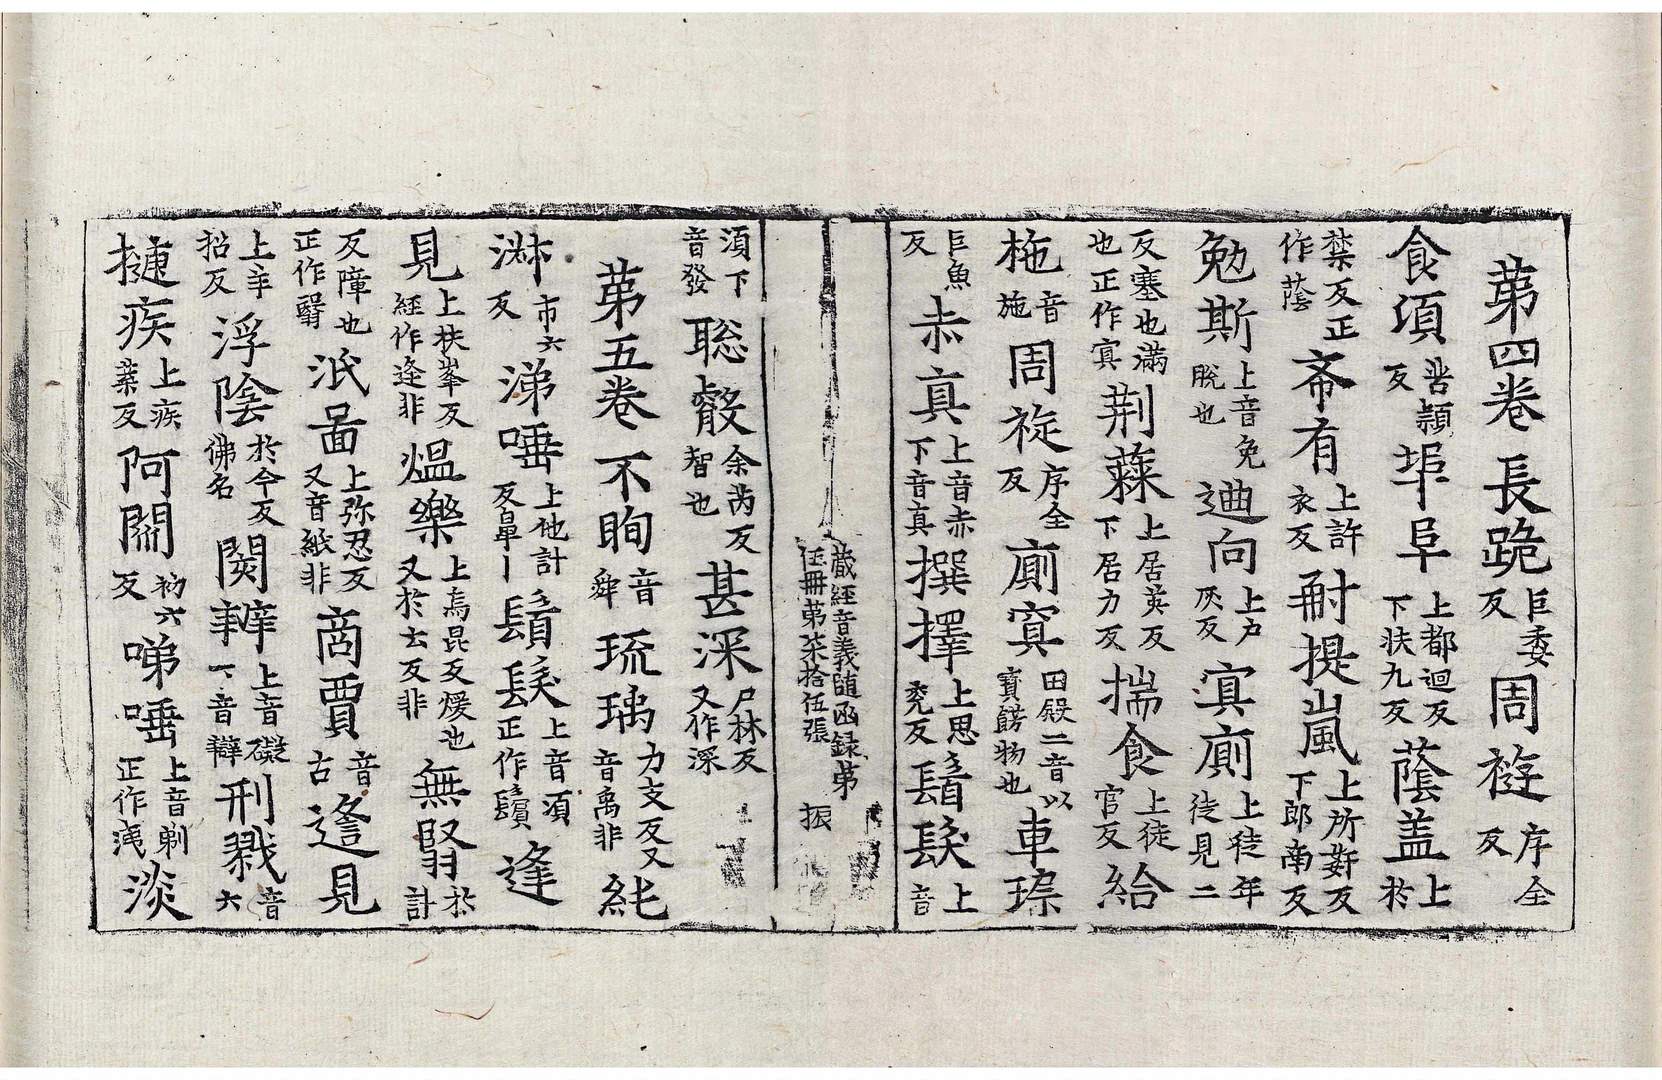 第四卷 長跪 巨委反 周旋 序全反
食湏 普頴反 埠阜 上都迴反下扶九反 蔭盖 上於
禁反正作䕃 斋有 上許衣反 耐提嵐 上所𡜟反下郎南反
勉斯 上音免脫也 迪向 上户灰反 寘廁 上徒年徒見二
反塞也滿也正作寘 荆蕀 上居英反下居力反 揣食 上徒官反 給
柂 音施 周旋 序全反 廁寘 田殿二音以寳餝物也 車𤥐
巨魚反 赤真 上音赤下音真 撰擇 上思兖反 鬚髮 上音
湏下音發 聡叡 余芮反智也 甚深 尸林反又作㴱
第五卷 不眴 音舜 琉瑀 力支反又音禹非 純
淋 市六反 涕唾 上他計反鼻丨 鬚髮 上音湏正作鬚 逢
見 上扶峯反經作逄非 熅樂 上烏昆反煖也又於云反非 無翳 於計
反障也正作翳 泯啚 上弥忍反又音紙非 啇賈 音古 逢見
上羊招反 浮陰 於今反佛名 閡辢 上音礙下音辯 刑戮 音六
揵疾 上疾葉反 阿閦 初六反 啼唾 上音剃正作涕 淡
藏經音義随函録苐伍冊苐柒拾伍張 振